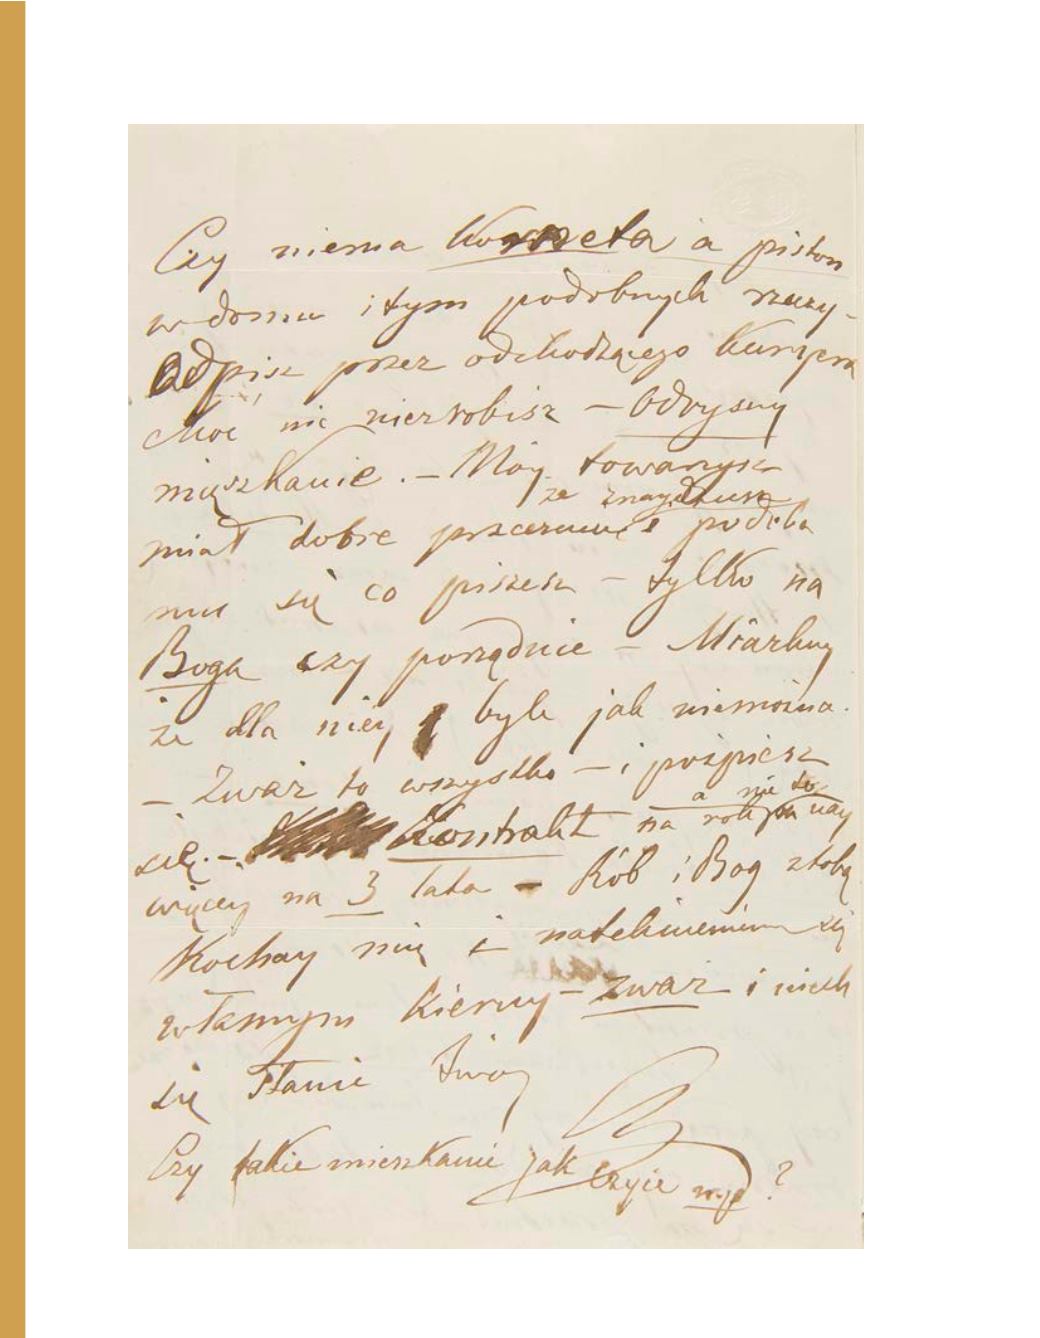 Czy niema Korneta à piston
w domu i tym podobnych rzeczy –
Odpisz przez odchodzącego kuryera
choć nic niezrobisz – Odrysuy
mięszkanie. – Móy towarzysz
ze znaydziesz
miał dobre przeczucie i podoba
mu się co piszesz – tylko na
Boga czy porządnie –
że dla niey byle jak niemożna.
– Zważ to wszystko – i pośpiesz
a nie to
się. – Kontrakt na rok nay
więcey na 3 lata – Rób i Bog z tobą
Kochay mię i natchnieniem się
własnym kieruy – zważ i niech
się stanie Twoy
Czy takie mieszkanie jak